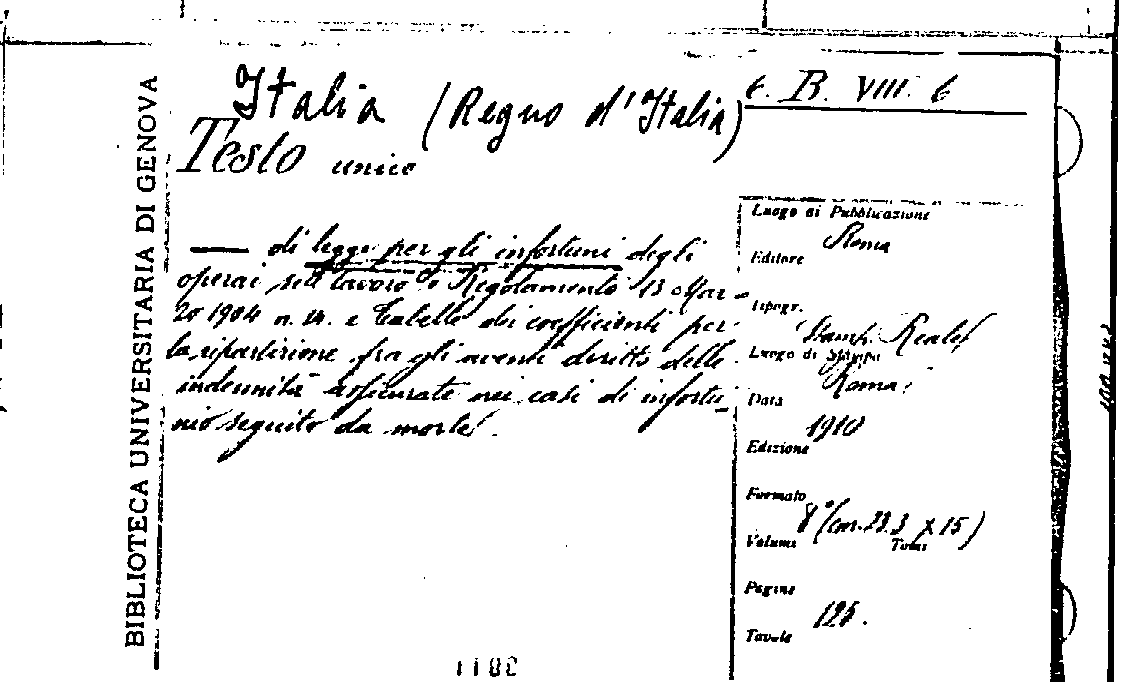 BIBLIOTECA UNIVERSITARIA DI GENOVA
Italia (Regno d'Italia)
6. B. VIII. 6
Testo unico
— di legge per gli infortuni degli
operai sul lavoro e Regolamento 13 Mar-
zo 1904 n. 14. e Tabelle dei coefficienti per
la ripartizione fra gli aventi diritto delle
indennità assicurate nei casi di infortu-
nio seguito da morte.
Luogo di Pubblicazione
Roma
Editore
Tipogr.
Stamp. Reale
Luogo di Stampa
Roma
Data
1910
Edizione
Formato
8° (cm. 23.3 x 15)
Volumi Tomi
Pagine
125.
Tavole